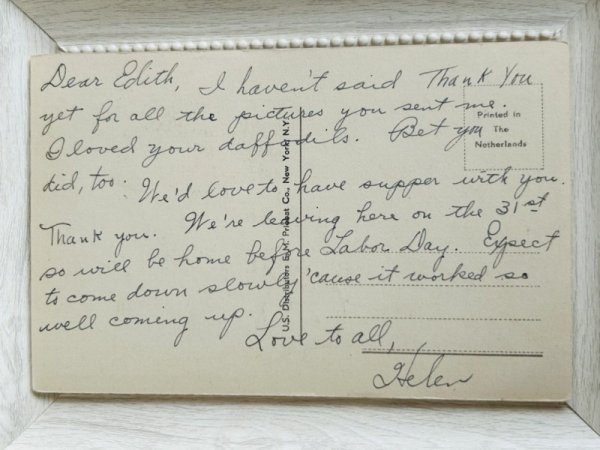 Dear Edith, I haven't said Thank You
yet for all the pictures you sent me.
I loved your daffodils. Bet you
did, too. We'd love to have supper with you.
Thank you. We're leaving here on the 31st
so will be home before Labor Day. Expect
to come down slowly 'cause it worked so
well coming up.
Love to all,
Helen
Printed in
The
Netherlands
U.S. Distributors Printest Co., New York, N.Y.